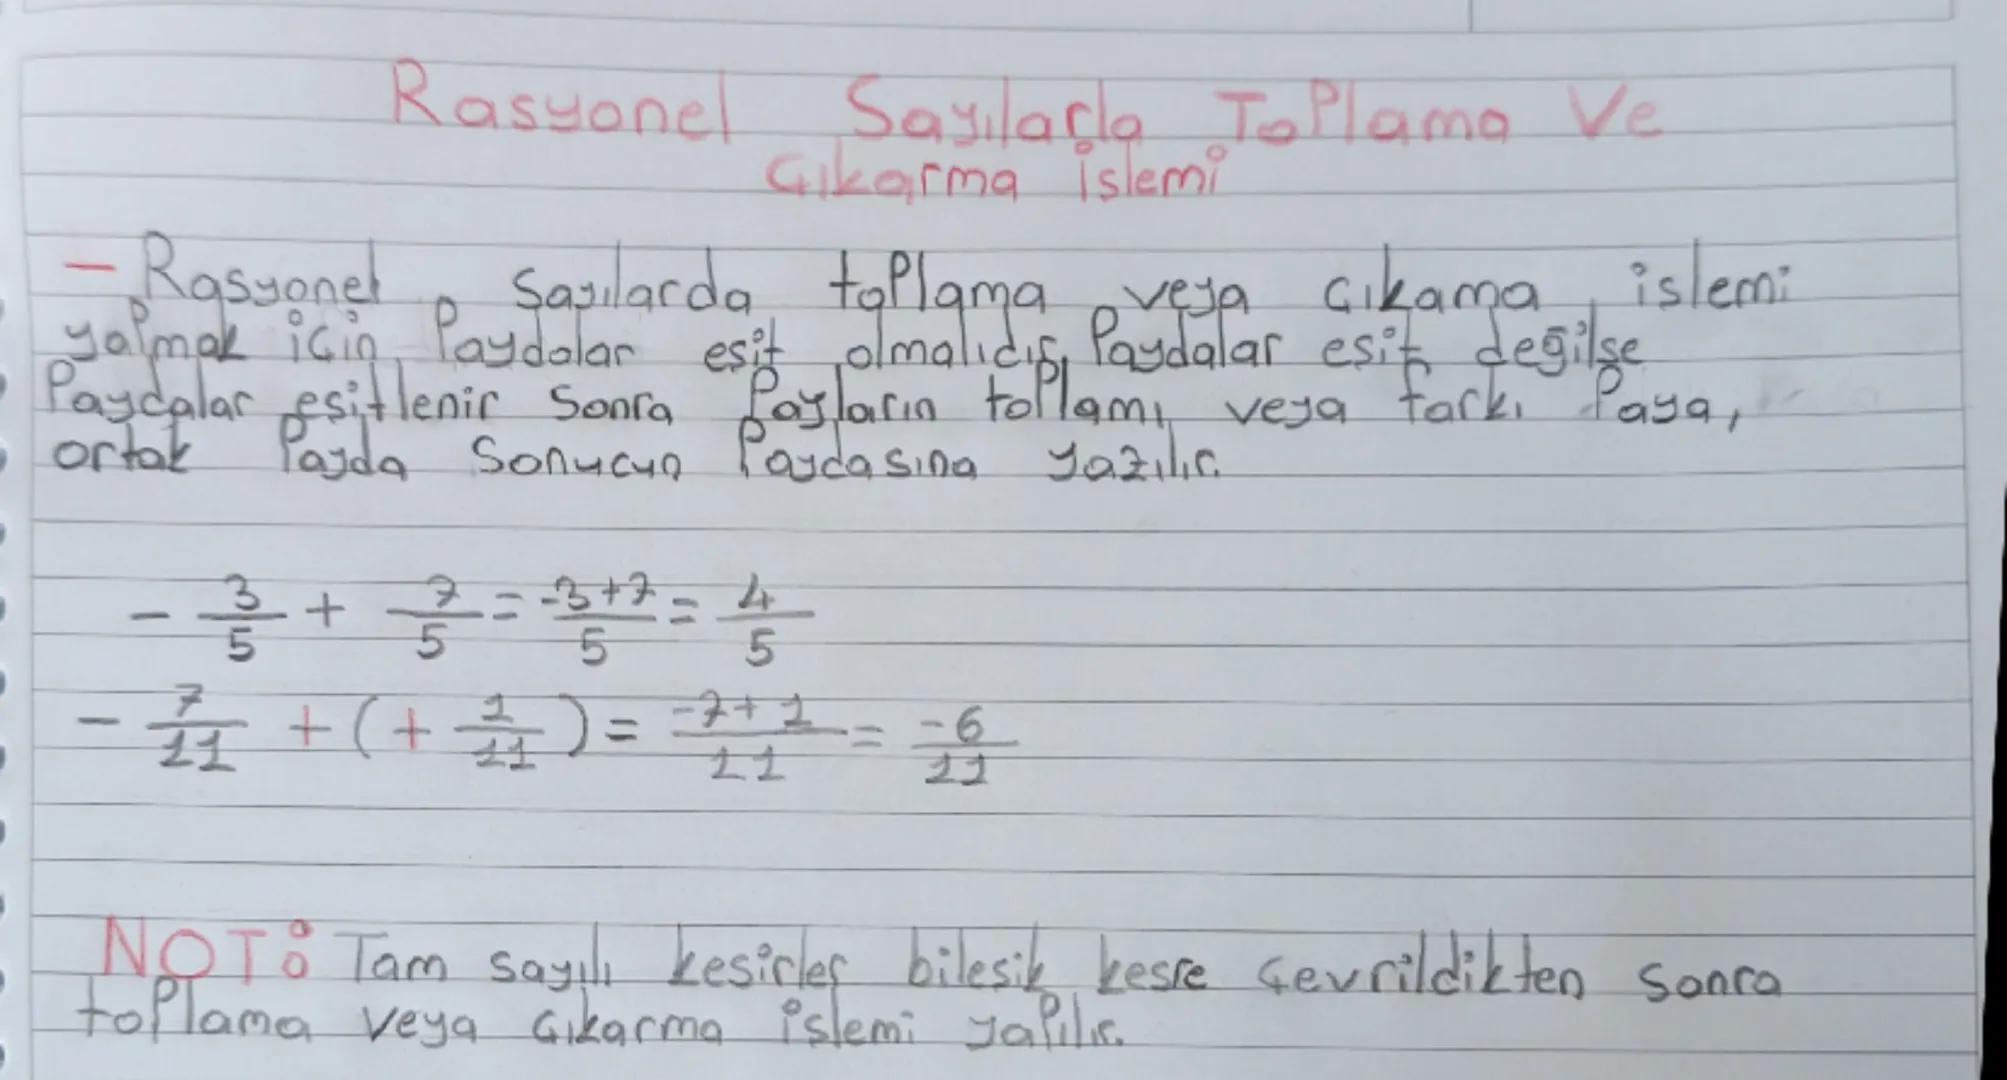 Rasyonel Sayılarla Toplama Ve
Çıkarma işlemi
- Rasyonel sayılarda toplama veya çıkama işlemi
yapmak için Paydalar eşit olmalıdır, Paydalar eşit değilse
Paydalar eşitlenir sonra Payların toplamı veya farkı Paya,
ortak Payda Sonucun Paydasına yazılır.
- 3/5 + 7/5 = -3+7/5 = 4/5
- 7/11 + (+ 1/11) = -7+1/11 = -6/11
NOT: Tam sayılı kesirler bileşik kesre çevrildikten sonra
toplama veya çıkarma işlemi yapılır.